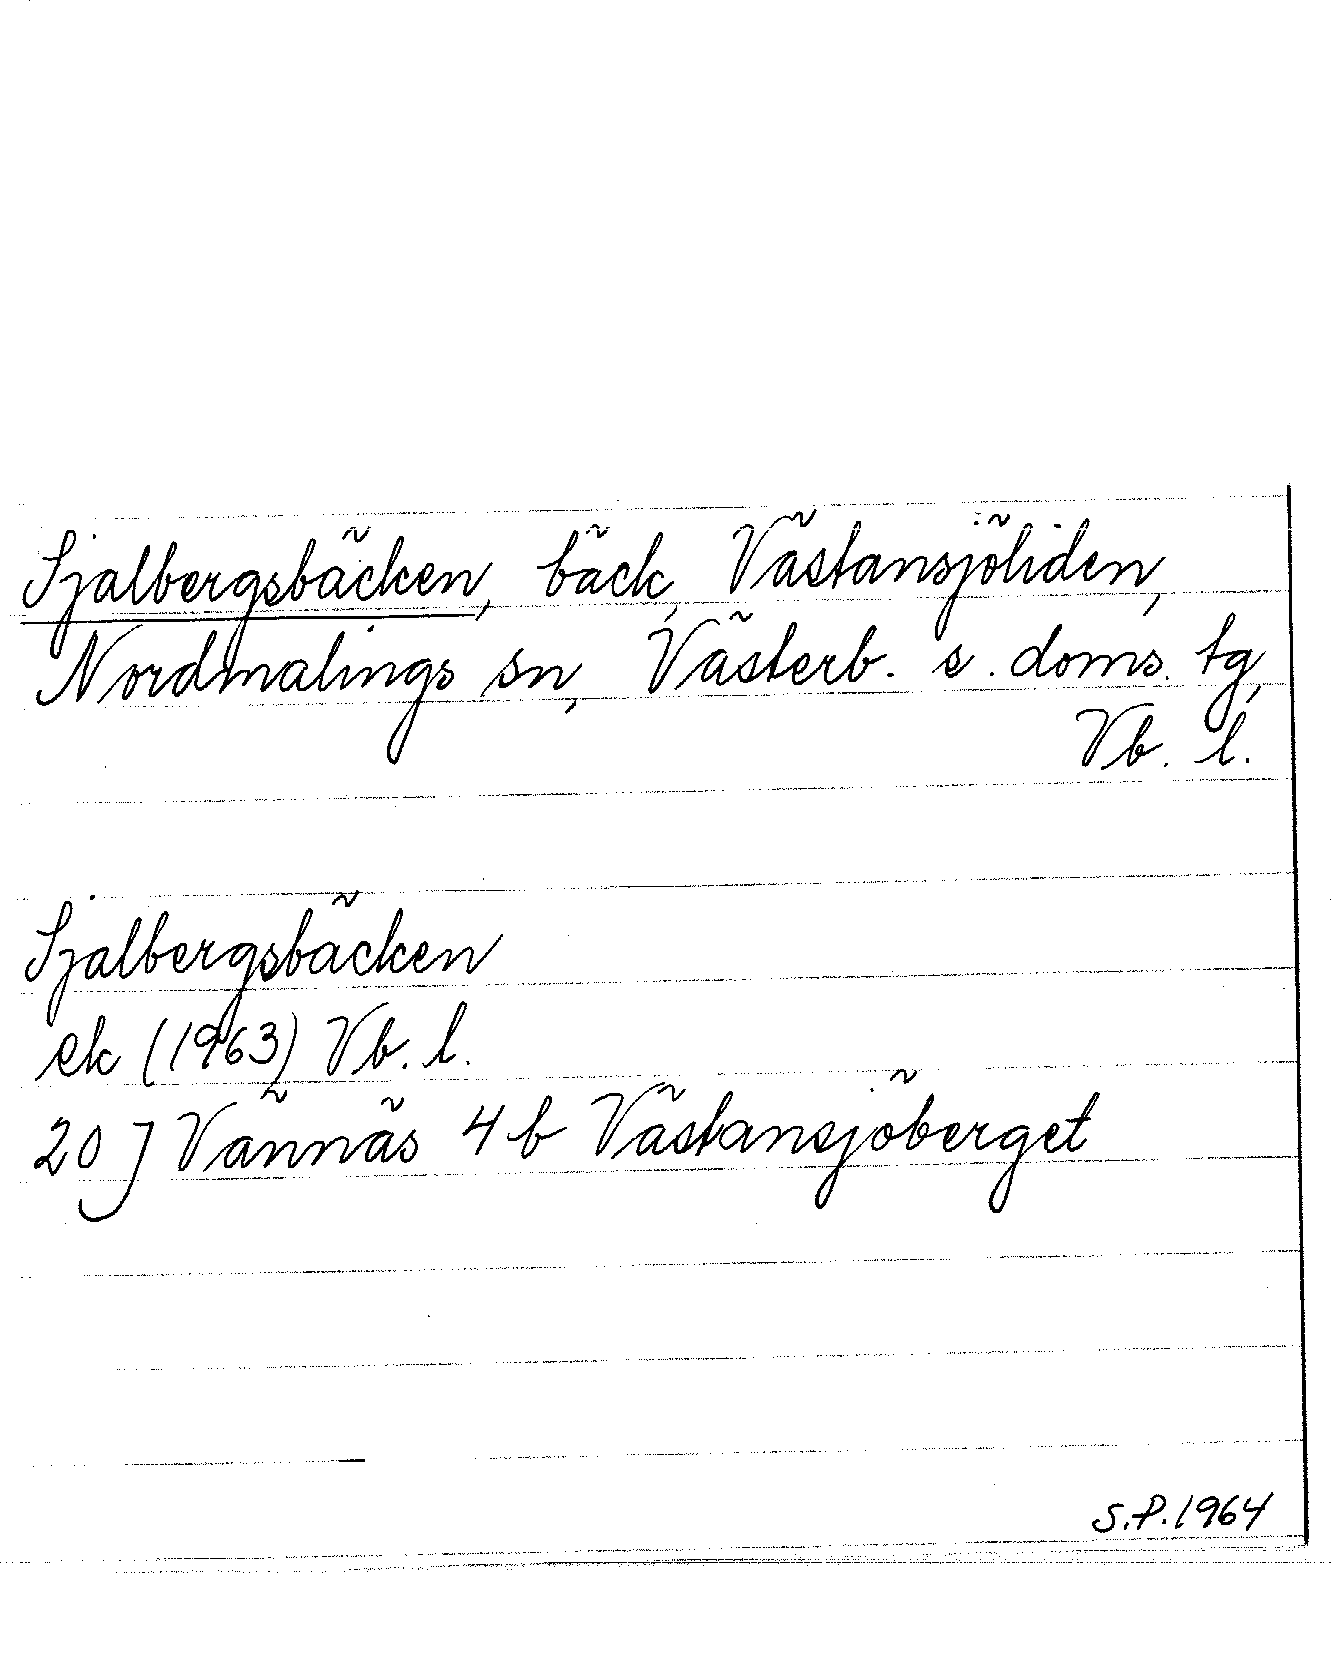 Sjalbergsbäcken, bäck, Västansjöliden,
Nordmalings sn, Västerb. s. doms. tg,
Vb. l.
Sjalbergsbäcken
ek (1963) Vb. l.
20 J Vännäs 4 b Västansjöberget
S.P. 1964